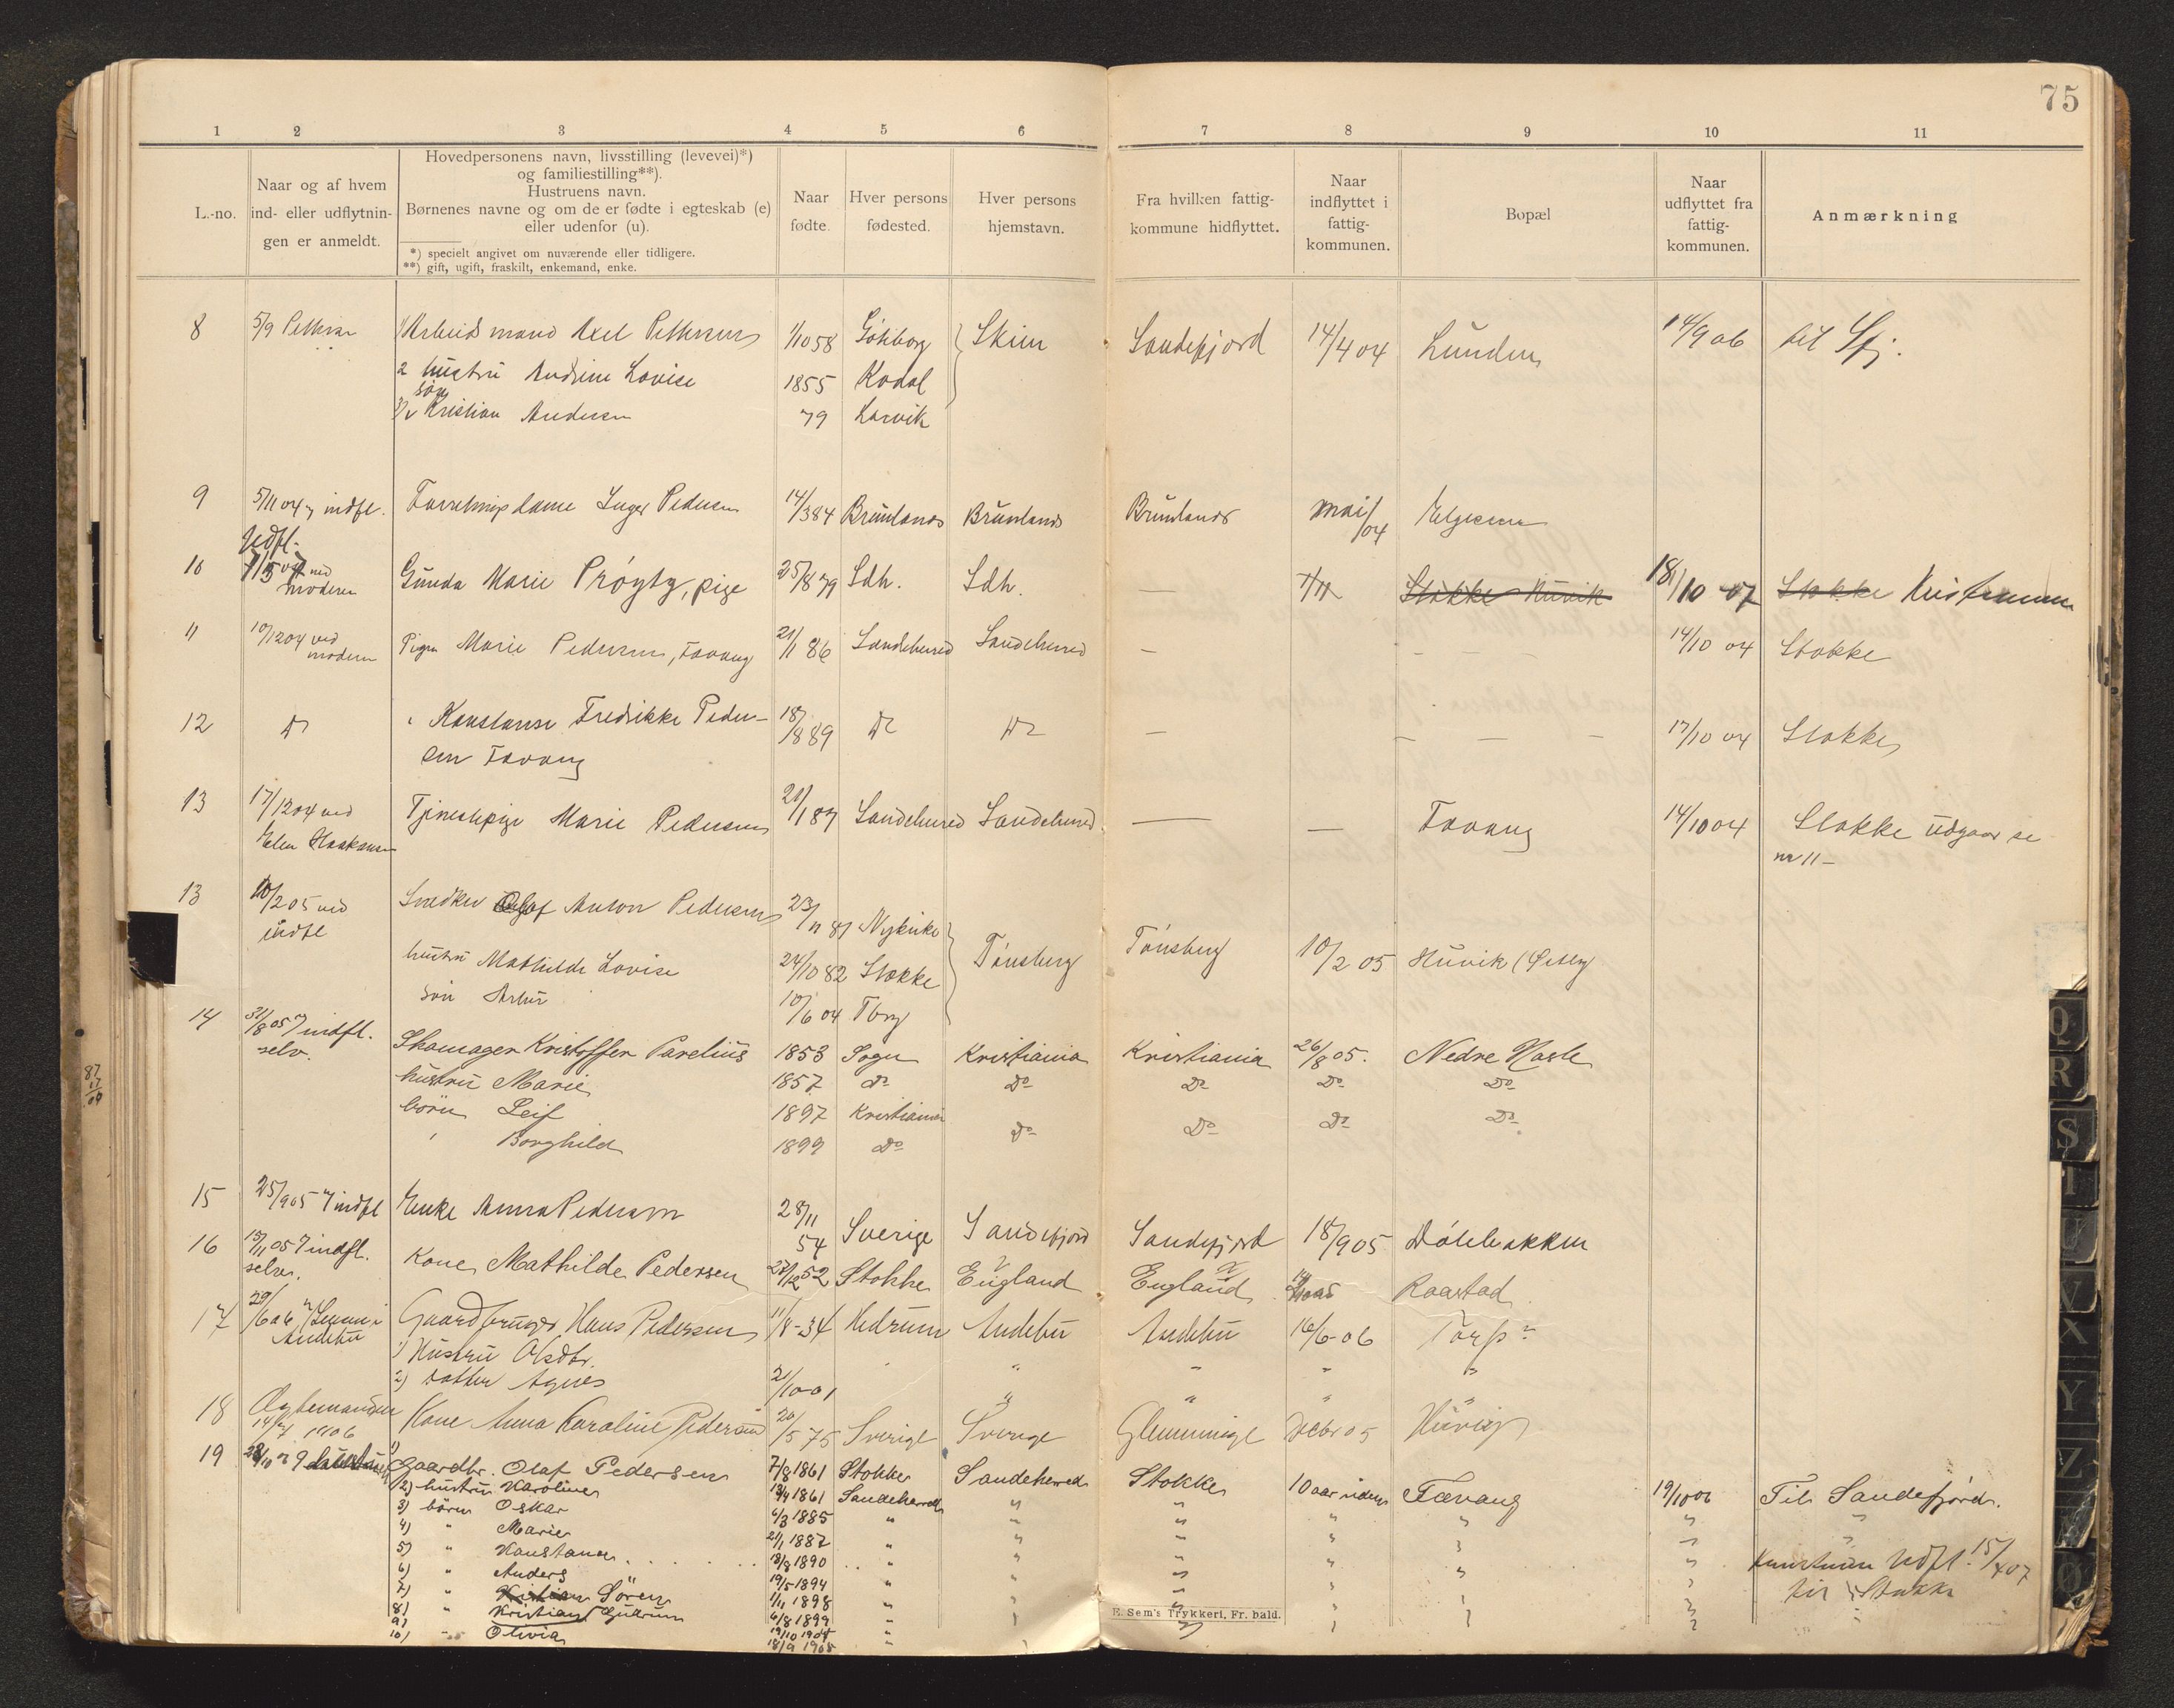 75
1 2 3 4 5 6 7 8 9 10 11
L.-no.
Naar og af hvem
ind- eller udflytnin-
gen er anmeldt.
Hovedpersonens navn, livsstilling (levevei)*)
og familiestilling**).
Hustruens navn.
Børnenes navne og om de er fødte i egteskab (e)
eller udenfor (u).
*) specielt angivet om nuværende eller tidligere.
**) gift, ugift, fraskilt, enkemand, enke.
Naar
fødte.
Hver persons
fødested.
Hver persons
hjemstavn.
Fra hvilken fattig-
kommune hidflyttet.
Naar
indflyttet i
fattig-
kommunen.
Bopæl
Naar
udflyttet fra
fattig-
kommunen.
Anmærkning
8 5/9 1/ Arbeidsmand Axel 1/10 58 Göteborg Skien Sandefjord 14/4 04 Lunden 14/9 06 til Sfj.
2 hustru Andrine Lovise 1855 Kodal
søn
Kristian Andersen 79 Larvik
9 5/11 04 indfl. Inger Pedersen 14/3 84 Brunlanes Brunlanes Brunlanes mai/04
Udfl.
10 ved moderen Gunda Marie, pige 25/8 79 Sdh. Sdh. — Stokke Huvik 18/10 07 Stokke
11 10/12 04 ved moderen Pigen Marie Pedersen, Favang 21/1 86 Sandeherred Sandeherred — 14/10 04 Stokke
12 Do Konstanse Fredrikke Peder-
sen Favang 18/8 89 Do Do — 17/10 04 Stokke
13 17/12 04 ved Tjenestepige Marie Pedersen 21/1 87 Sandeherred Sandeherred — — Favang 14/10 04 Stokke udgaar se
nr 11 –
13 10/2 05 ved indfl Snedker Olaf Anton Pedersen 23/11 81 Nykirke Tønsberg Tønsberg 10/2 05 Huvik
hustru Mathilde Lovise 24/10 82 Stokke
søn Artur 10/6 04 Tbrg
14 31/8 05 indfl. selv. Skomager Kristoffer Parelius 1853 Sogn Kristiania Kristiania 26/8 05. Nedre Hasle
hustru Marie 1857 Do Do Do Do Do
børn Leif 1897 Kristiania
" Borghild 1899 Do Do Do Do Do
15 25/9 05 indfl Enke Anna Pedersen 28/11 54 Sverige Sandefjord Sandefjord 18/9 05 Dölebakken
16 13/11 05 indfl. selv. Kone Mathilde Pedersen 28/12 52 Stokke England England Raastad
17 29/6 06 Andebu Gaardbruger Hans Pedersen 11/8 - 34 Hedrum Andebu Andebu 16/6-06 Torp
1) Hustru
2) datter Agnes 2/10 01 " " " "
18 Ægtemanden 14/7 1906 Kone Anna Karoline Pedersen 20/5 75 Sverige Sverige Glemminge Decbr 05 Huvig
19 1) Gaardbr. Olaf Pedersen 7/8 1861 Stokke Sandeherred Stokke 10 aar siden Favang 19/10 06 Til Sandefjord.
2) hustru Karoline 13/4 1861 Sandeherred " " " " " "
3) børn Oskar 6/3 1885 " " " " " "
4) " Marie 21/1 1887 " " " " "
5) " Konstanse 18/8 1890 " " " " " udfl. 15/4 07
6) " Anders 19/5 1894 " " " " " til Stokke
7) " Kristian Sören 1/11 1898 " " " " "
8) " Kristian Gudrun 6/8 1899 " " " " "
9) 19/10 1904
10) " Olivia 18/9 1905
E. Sem's Trykkeri, Fr. hald.
87
17
04
Q
R
S
T
U
V
X
Y
Z
Æ
Ø